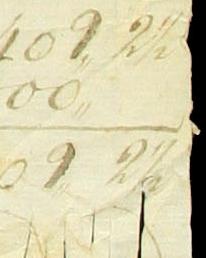 409„ 2½
00„
09„ 2½